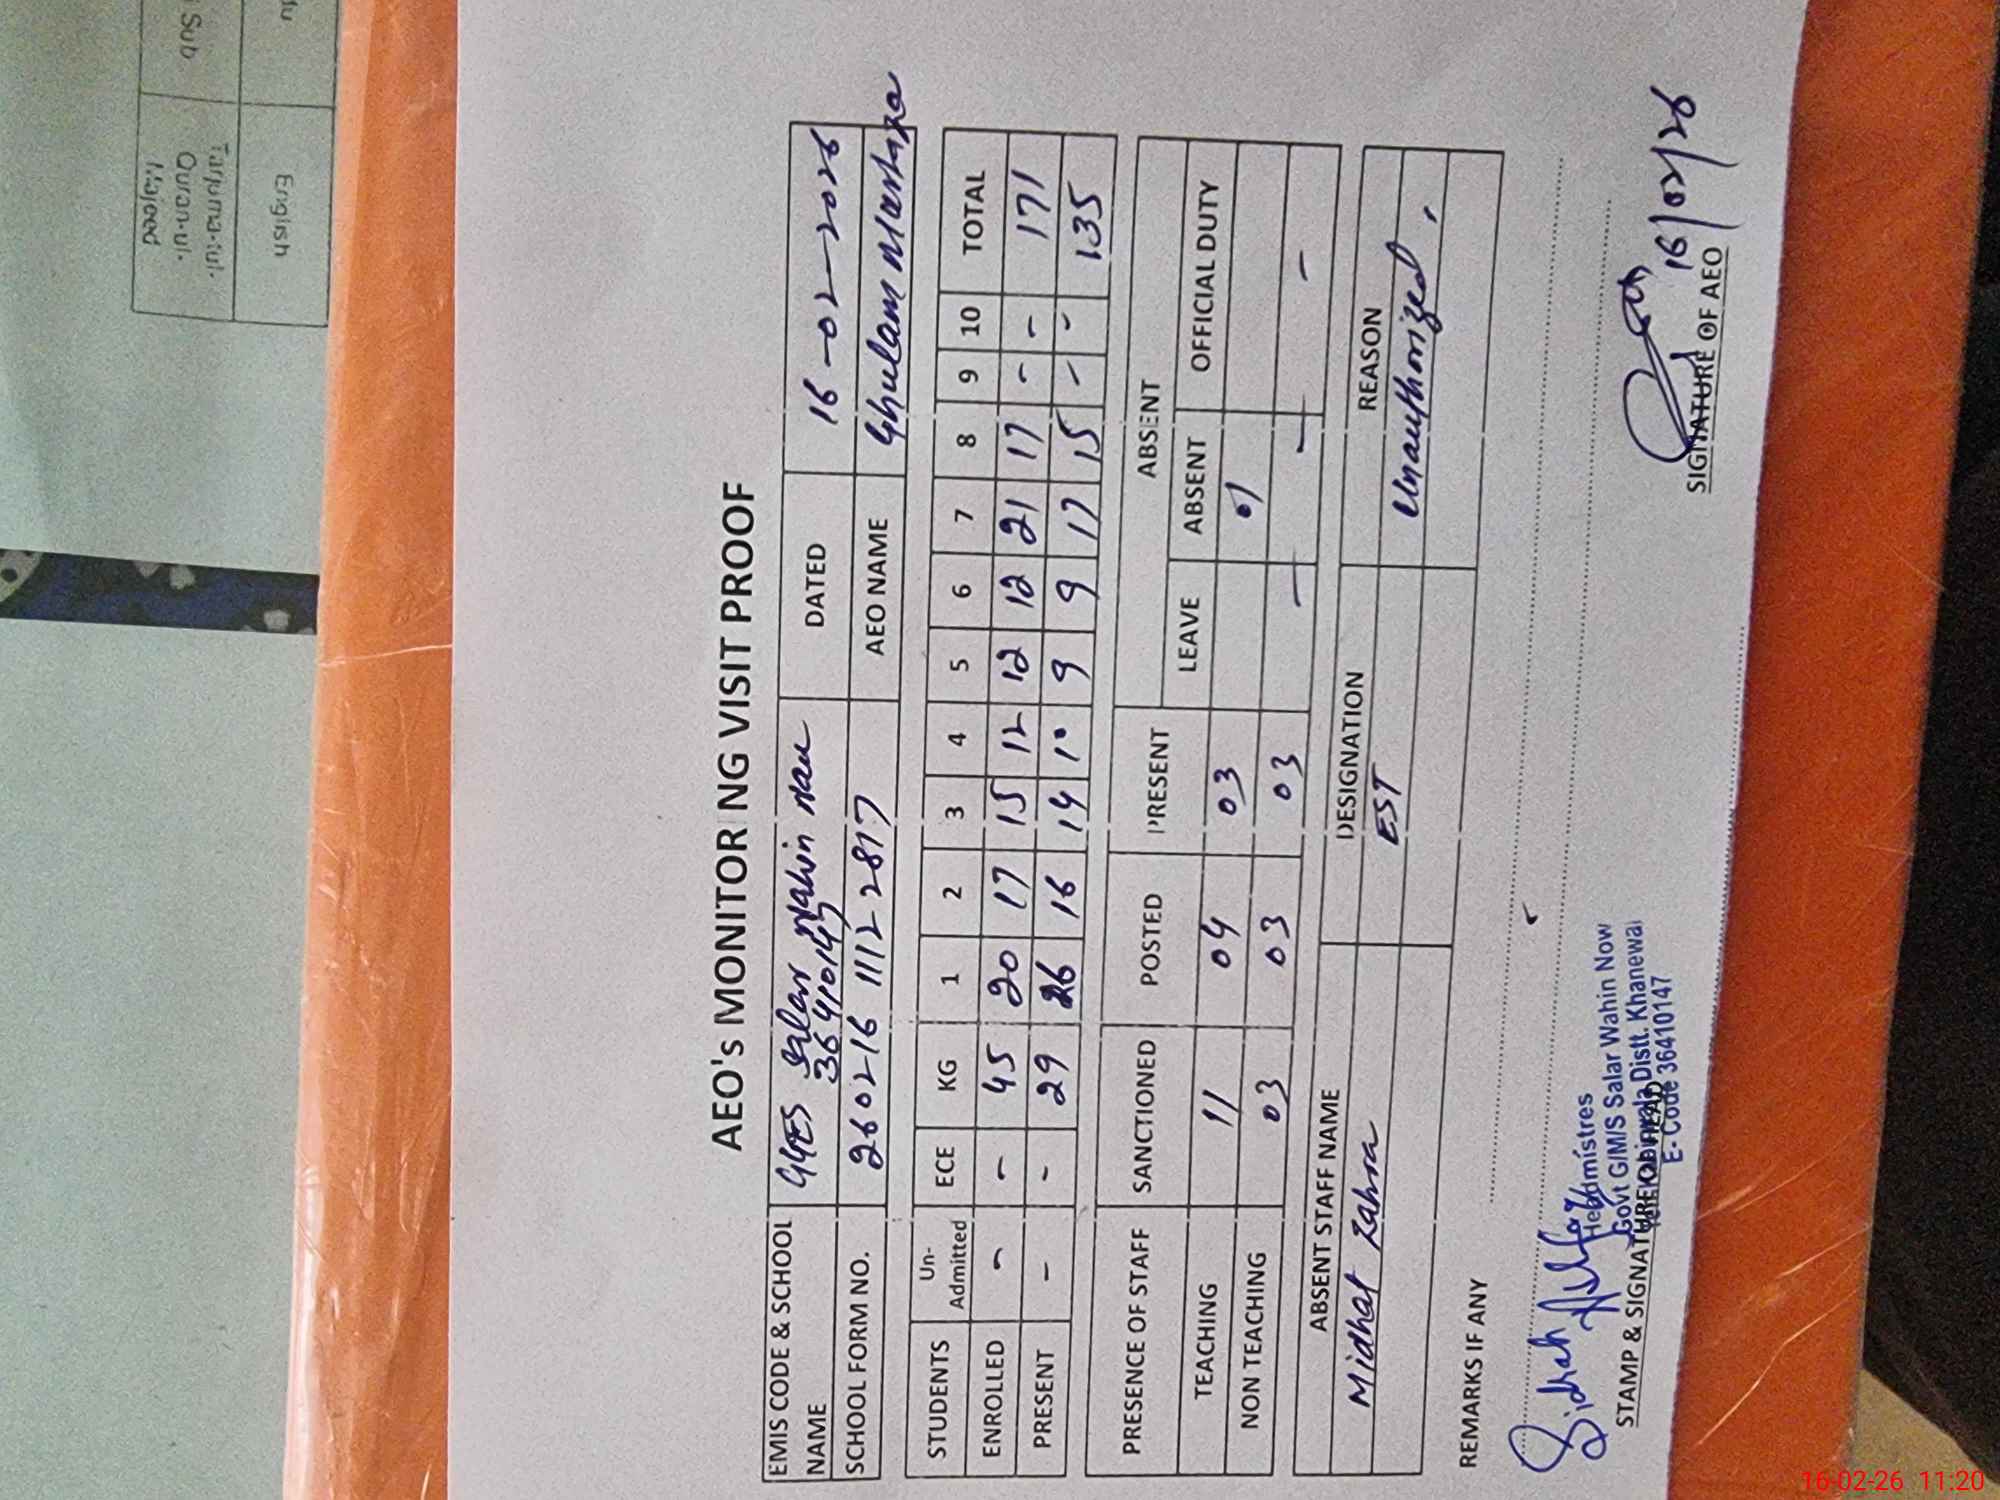 AEO's MONITORING VISIT PROOF
EMIS CODE & SCHOOL NAME GGES Salar Wahin Nau 36410147 DATED 16-02-2026
SCHOOL FORM NO. 260216 1112 2817 AEO NAME Ghulam Murtaza
STUDENTS Un-Admitted ECE KG 1 2 3 4 5 6 7 8 9 10 TOTAL
ENROLLED - - 45 20 17 15 12 12 12 21 17 - - 171
PRESENT - - 29 26 16 14 10 9 9 17 15 - - 135
PRESENCE OF STAFF SANCTIONED POSTED PRESENT ABSENT
LEAVE ABSENT OFFICIAL DUTY
TEACHING 11 04 03 01
NON TEACHING 03 03 03 - - -
ABSENT STAFF NAME DESIGNATION REASON
Midhat Zahra EST Unauthorized,
REMARKS IF ANY
Sidrah
Headmistres
Govt G/M/S Salar Wahin Now
Distt. Khanewal
E-Code 36410147
STAMP & SIGNATURE OF HEAD
16/02/26
SIGNATURE OF AEO
Sub
English
Tarjuma-tul-
Quran-ul-
Majeed
16-02-26 11:20